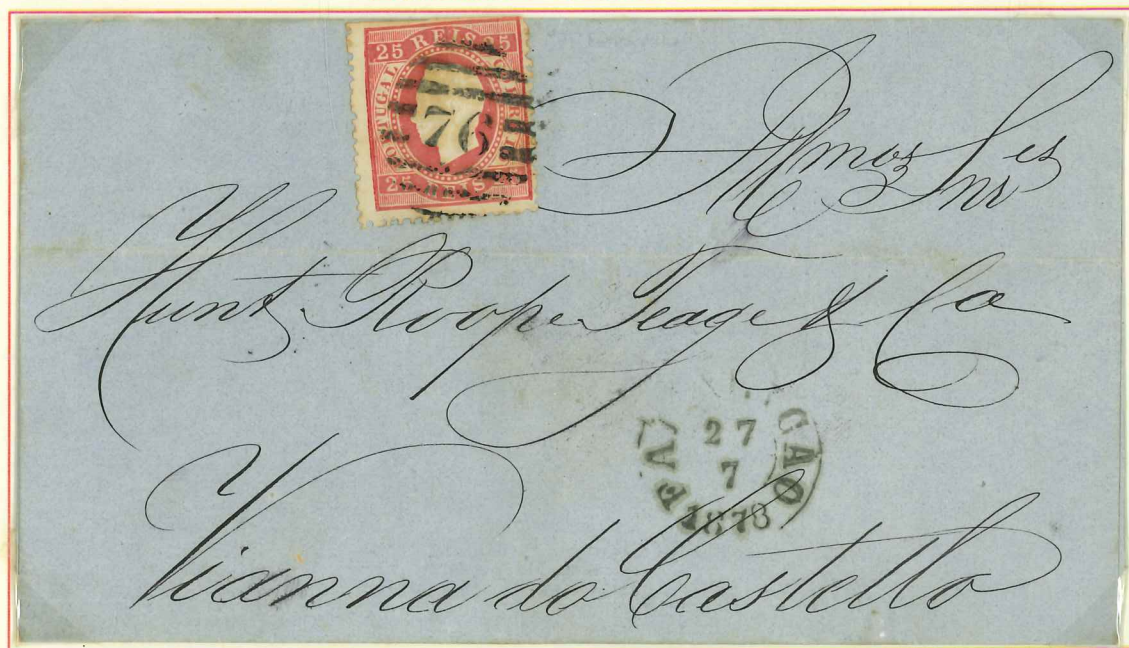 25 REIS 25
PORTUGAL CORREIO
76
25 REIS
Illmos Snres
Hunt Roope Teage & Co
27
7
1878
Vianna do Castello